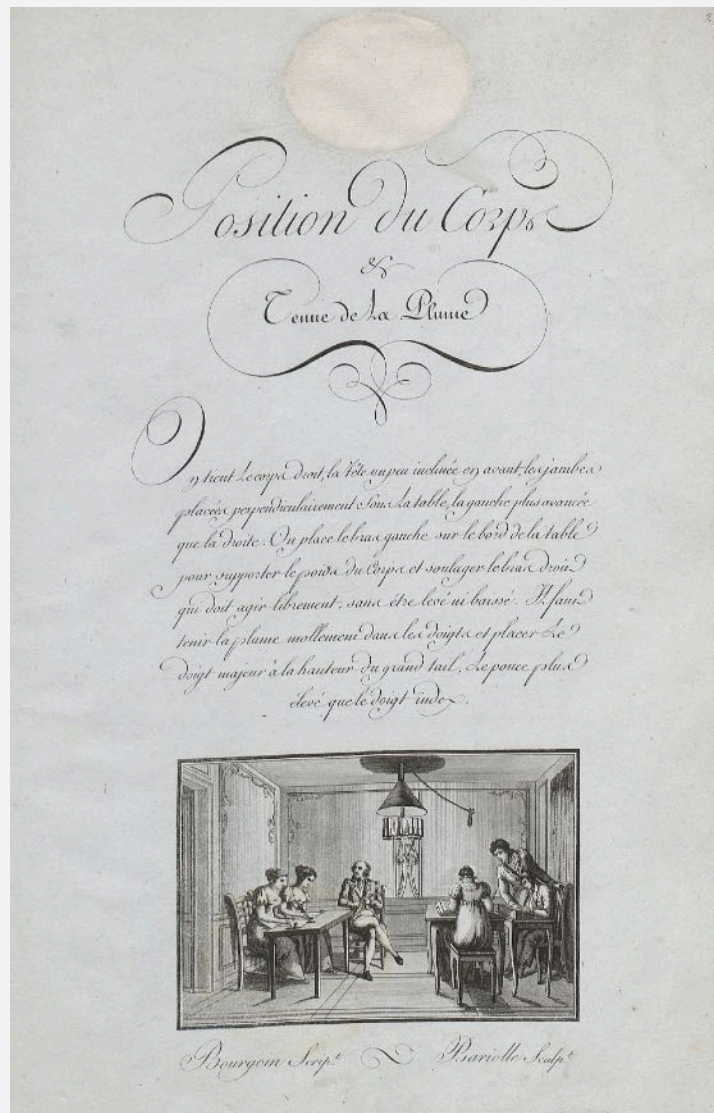 2
Position du Corps
&
Tenue de La Plume
On tient Le corps droit, la Tête un peu inclinée en avant, les jambes
placées perpendiculairement Sous La table, la gauche plus avancée
que la droite. On place le bras gauche sur le bord de la table
pour supporter le poids du Corps et soulager le bras droit
qui doit agir librement, sans être levé ni baissé. Il faut
tenir la plume mollement dans les doigts et placer Le
doigt majeur à la hauteur du grand tail, Le pouce plus
élevé que le doigt index.
Bourgoin Scrip.t Bariolle Sculp.t